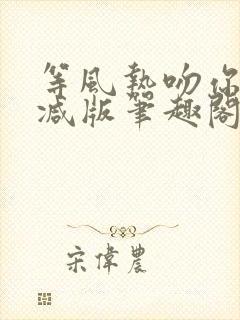 等風熱吻你
減版筆趣閣
宋偉農